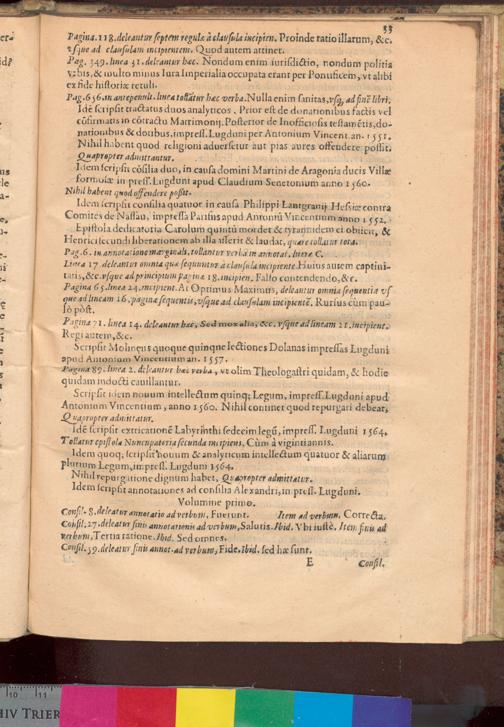 33
Pagina. 118. deleantur septem regulæ à clausula incipien. Proinde ratio illarum, &c.
vsque ad clausulam incipientem. Quod autem attinet.
Pag. 349. linea 31. deleantur hæc. Nondum enim iurisdictio, nondum politia
vrbis, & multo minus iura Imperialia occupata erant per Pontificem, vt alibi
ex fide historiæ retuli.
Pag. 656. in antepenult. linea tollatur hæc verba. Nulla enim sanitas, vsq; ad finē libri.
Idē scripsit tractatus duos analyticos. Prior est de donationibus factis vel
cōfirmatis in cōtractu Matrimonij. Posterior de Inofficiosis testamētis, do-
nationibus & dotibus, impress. Lugduni per Antonium Vincent. an. 1551.
Nihil habent quod religioni aduersetur aut pias aures offendere possit.
Quapropter admittantur.
Idem scripsit cōsilia duo, in causa domini Martini de Aragonia ducis Villæ
formosæ in press. Lugduni apud Claudium Senetonium anno 1560.
Nihil habent quod offendere possit.
Idem scripsit consilia quatuor in causa Philippi Lantgrauij Hessiæ contra
Comites de Nassau, impressa Parisiis apud Antoniū Vincentium anno 1552.
Epistola dedicatoria Carolum quintū mordet & tyrannidem ei obiicit, &
Henrici secundi liberationem ab illa asserit & laudat, quare tollatur tota.
Pag. 6. in annotatione marginali, tollantur verba in annotat. litera C.
Linea 17. deleantur omnia quæ sequuntur à clausula incipiente. Huius autem captiui-
tatis, &c. vsque ad principium paginæ 18. incipien. Falso contendendo, &c.
Pagina 65. linea 24. incipient. At Optimus Maximus, deleantur omnia sequentia vs
que ad lineam 16. pagina sequentis, vsque ad clausulam incipientē. Rursus cùm pau-
lò pòst.
Pagina 71. linea 14. deleantur hæc, Sed mox alia, &c. vsque ad lineam 21. incipient.
Regi autem, &c.
Scripsit Molineus quoque quinque lectiones Dolanas impressas Lugduni
apud Antonium Vincentium an. 1557.
Pagina 89. linea 2. deleantur hæc verba, vt olim Theologastri quidam, & hodie
quidam indocti cauillantur.
Scripsit idem nouum intellectum quinq; Legum, impress. Lugduni apud
Antonium Vincentium, anno 1560. Nihil continet quod repurgari debeat,
Quapropter admittatur.
Idē scripsit extricationē Labyrinthi sedecim legū, impress. Lugduni 1564.
Tollatur epistola Nuncupatoria secunda incipiens. Cùm à viginti annis.
Idem quoq; scripsit nouum & analyticum intellectum quatuor & aliarum
plurium Legum, impress. Lugduni 1564.
Nihil repurgatione dignum habet, Quapropter admittatur.
Idem scripsit annotationes ad consilia Alexandri, in press. Lugduni.
Volumine primo.
Consil. 8. deleatur annotatio ad verbum, Fuerunt. Item ad verbum. Correcta.
Consil. 27. deleatur finis annotationis ad verbum, Salutis. Ibid. Vbi iustè. Item finis ad
verbum, Tertia ratione. Ibid. Sed omnes.
Consil. 39. deleatur finis annot. ad verbum, Fide. Ibid. sed hæ sunt.
E Consil.
10 11
HIV TRIER